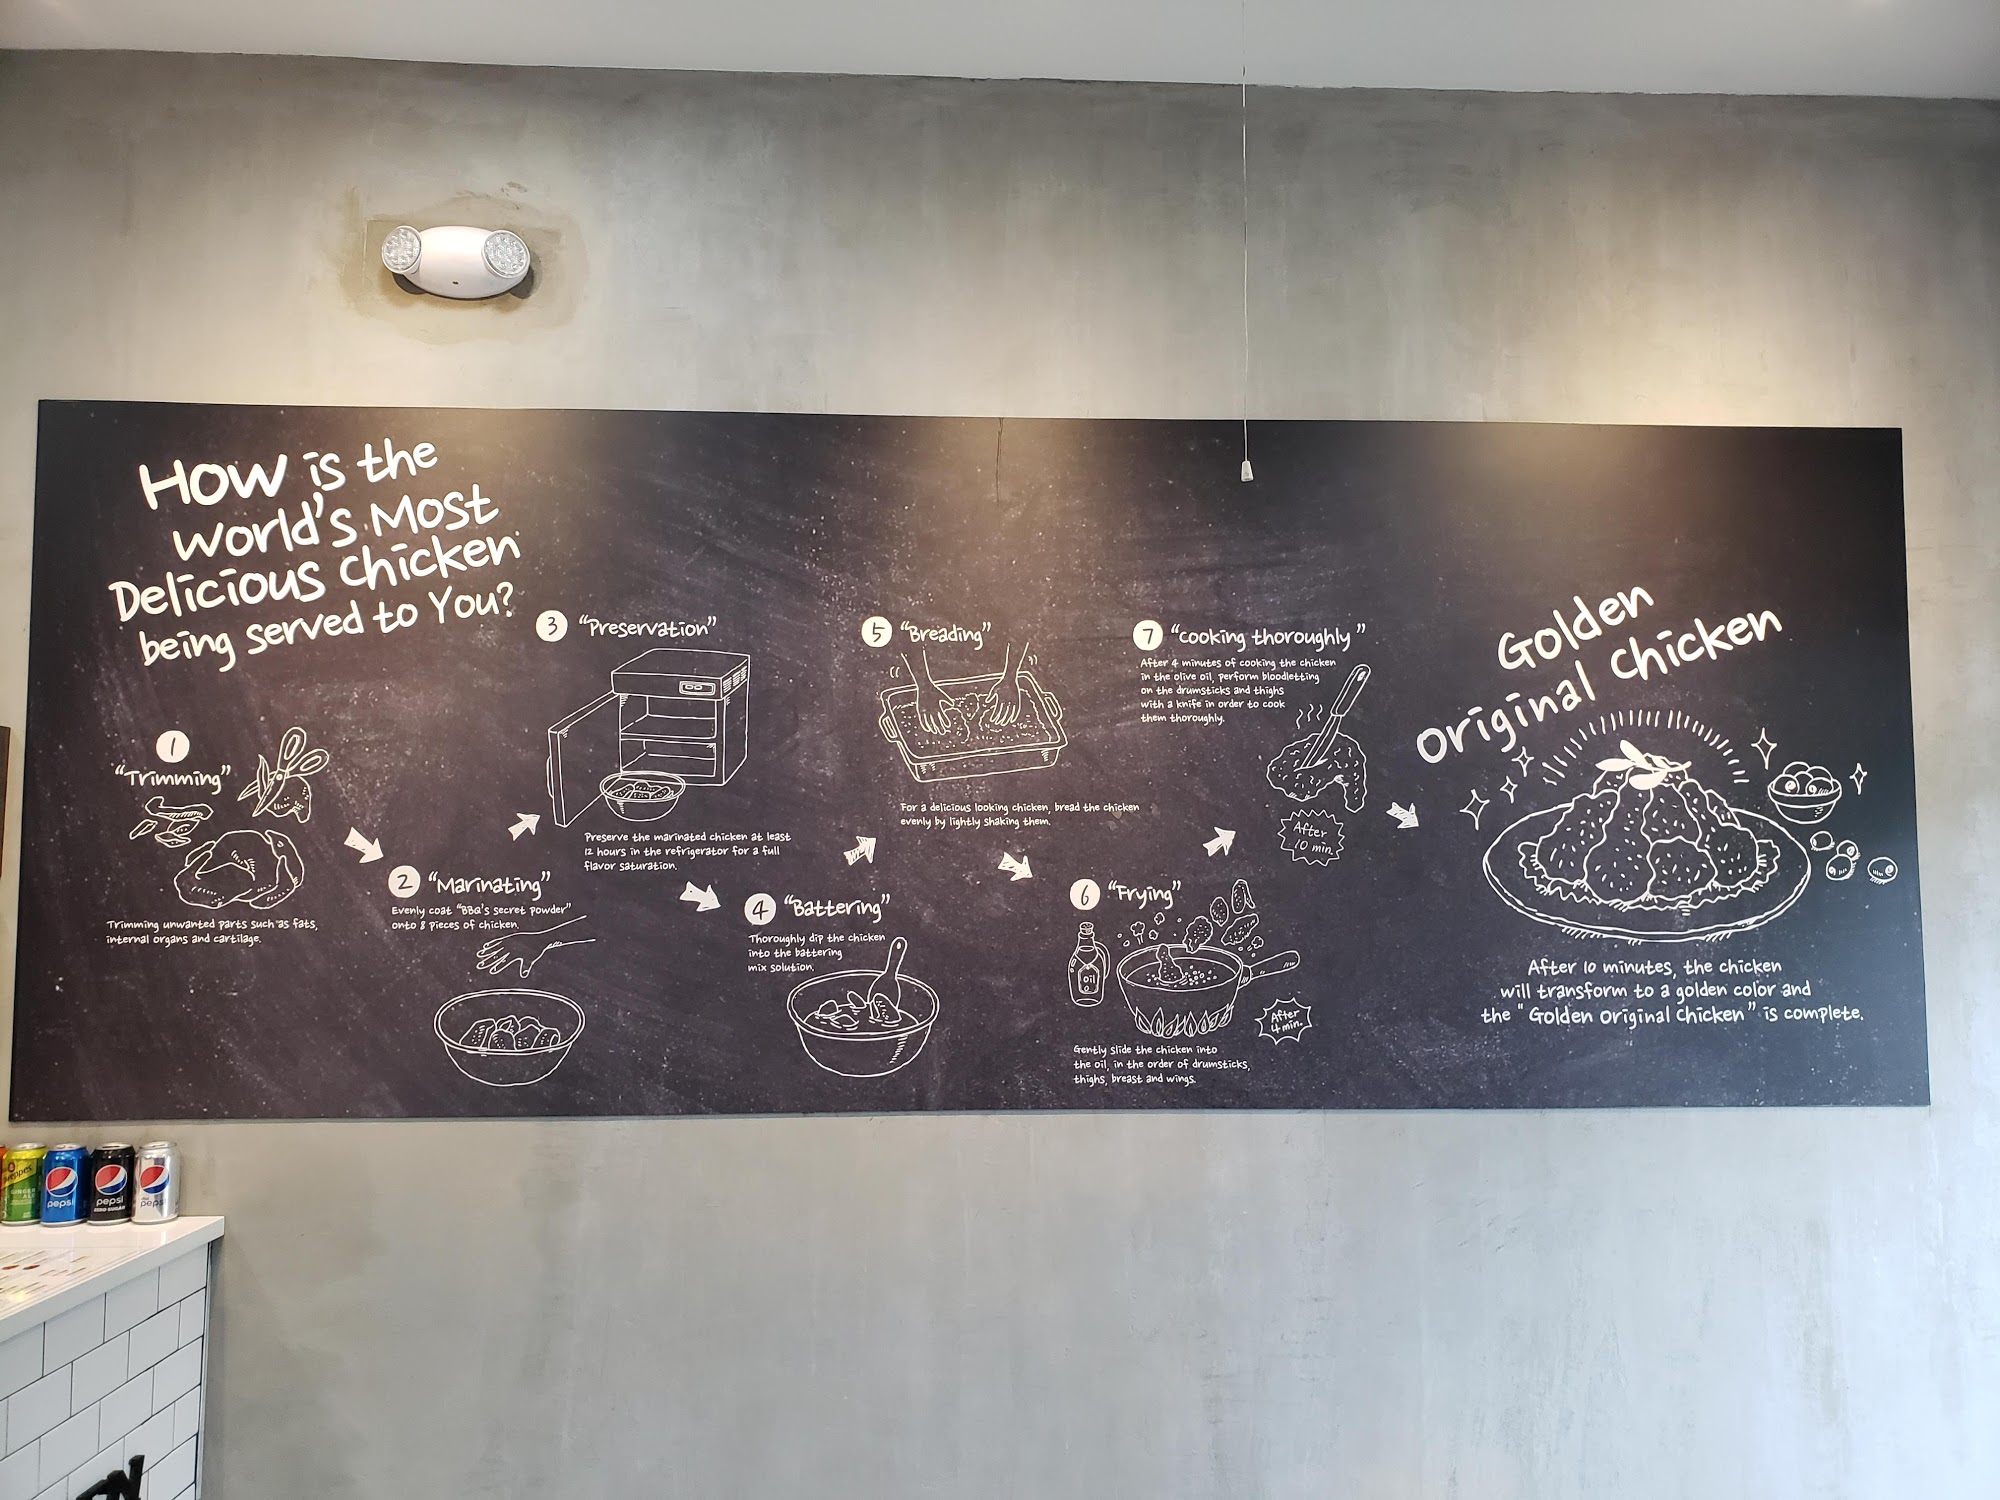 How is the
World's Most
Delicious Chicken
being served to You?
1
"Trimming"
Trimming unwanted parts such as fats,
internal organs and cartilage.
2 "Marinating"
Evenly coat "BBQ's secret powder"
onto 8 pieces of chicken.
3 "Preservation"
Preserve the marinated chicken at least
12 hours in the refrigerator for a full
flavor saturation.
4 "Battering"
Thoroughly dip the chicken
into the battering
mix solution.
5 "Breading"
For a delicious looking chicken, bread the chicken
evenly by lightly shaking them.
6 "Frying"
oil
After
4 min.
Gently slide the chicken into
the oil, in the order of drumsticks,
thighs, breast and wings.
7 "Cooking thoroughly"
After 4 minutes of cooking the chicken
in the olive oil, perform bloodletting
on the drumsticks and thighs
with a knife in order to cook
them thoroughly.
After
10 min.
Golden
Original Chicken
After 10 minutes, the chicken
will transform to a golden color and
the "Golden Original Chicken" is complete.
GINGER
ALE
pepsi
pepsi
ZERO SUGAR
pepsi